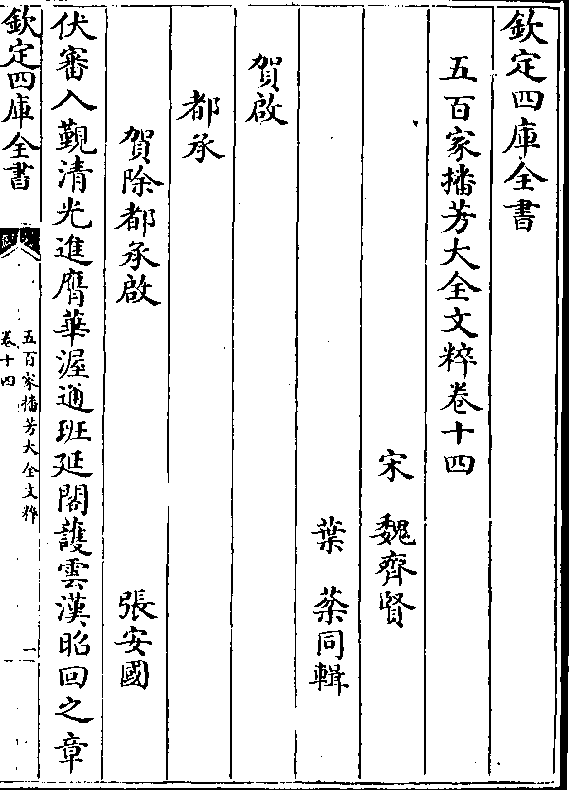 欽定四庫全書
五百家播芳大全文粹卷十四
宋 魏齊賢
葉 棻同輯
賀啟
都承
賀除都承啟 張安國
伏審入覲清光進膺華渥通班延閣護雲漢昭回之章
欽定四庫全書
五百家播芳大全文粹
卷十四
一